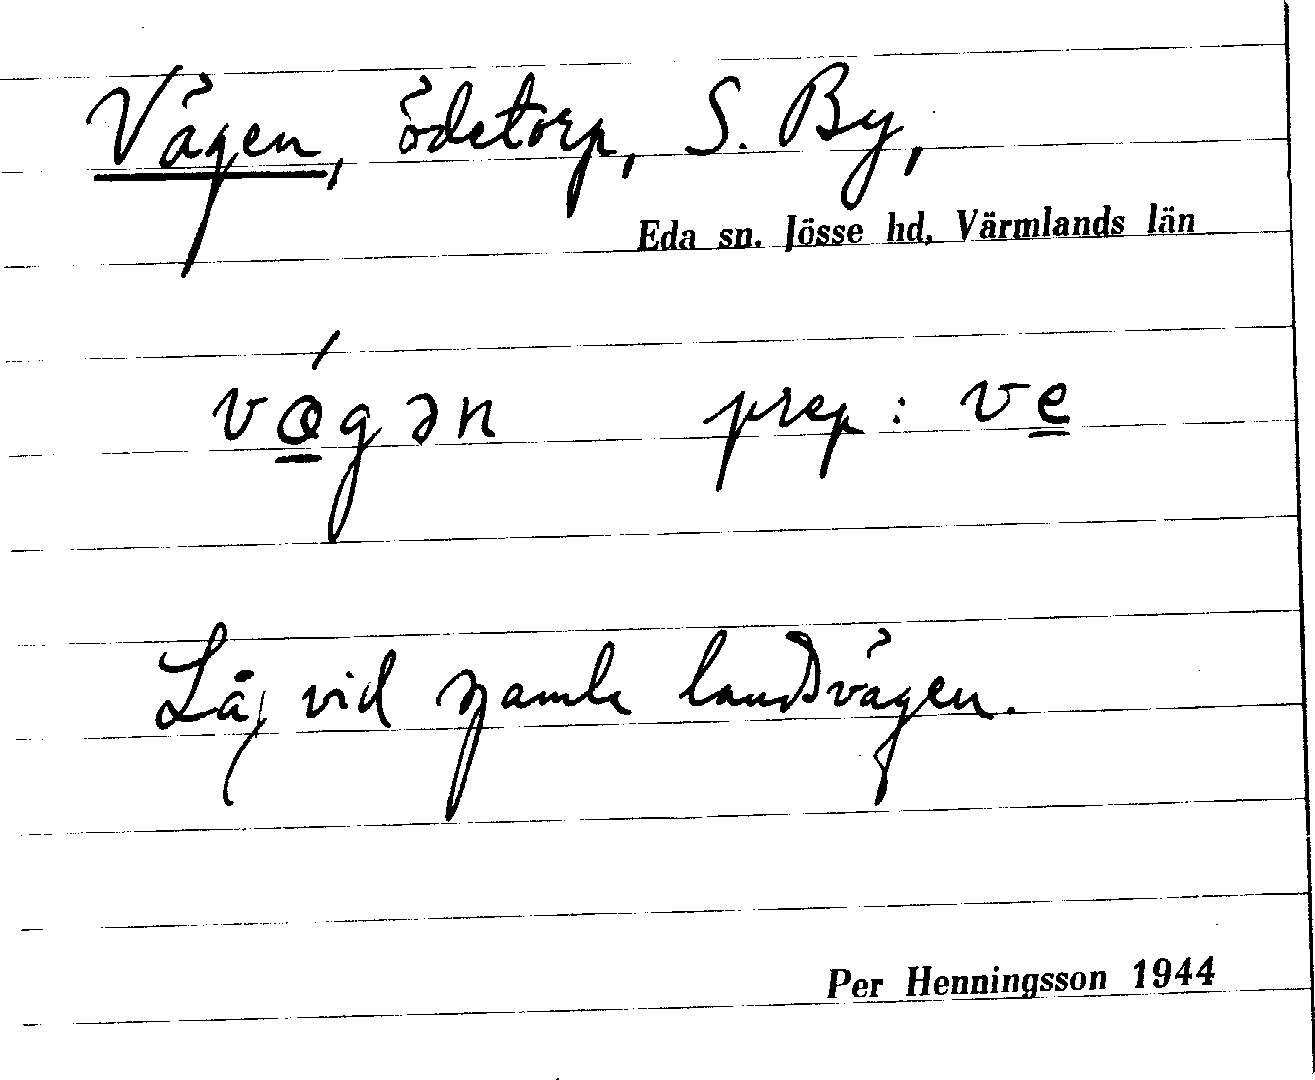 Vägen, ödetorp, S. By,
Eda sn. Jösse hd, Värmlands län
vǫ́gən prep: ve̲
Låg vid gamla landsvägen.
Per Henningsson 1944